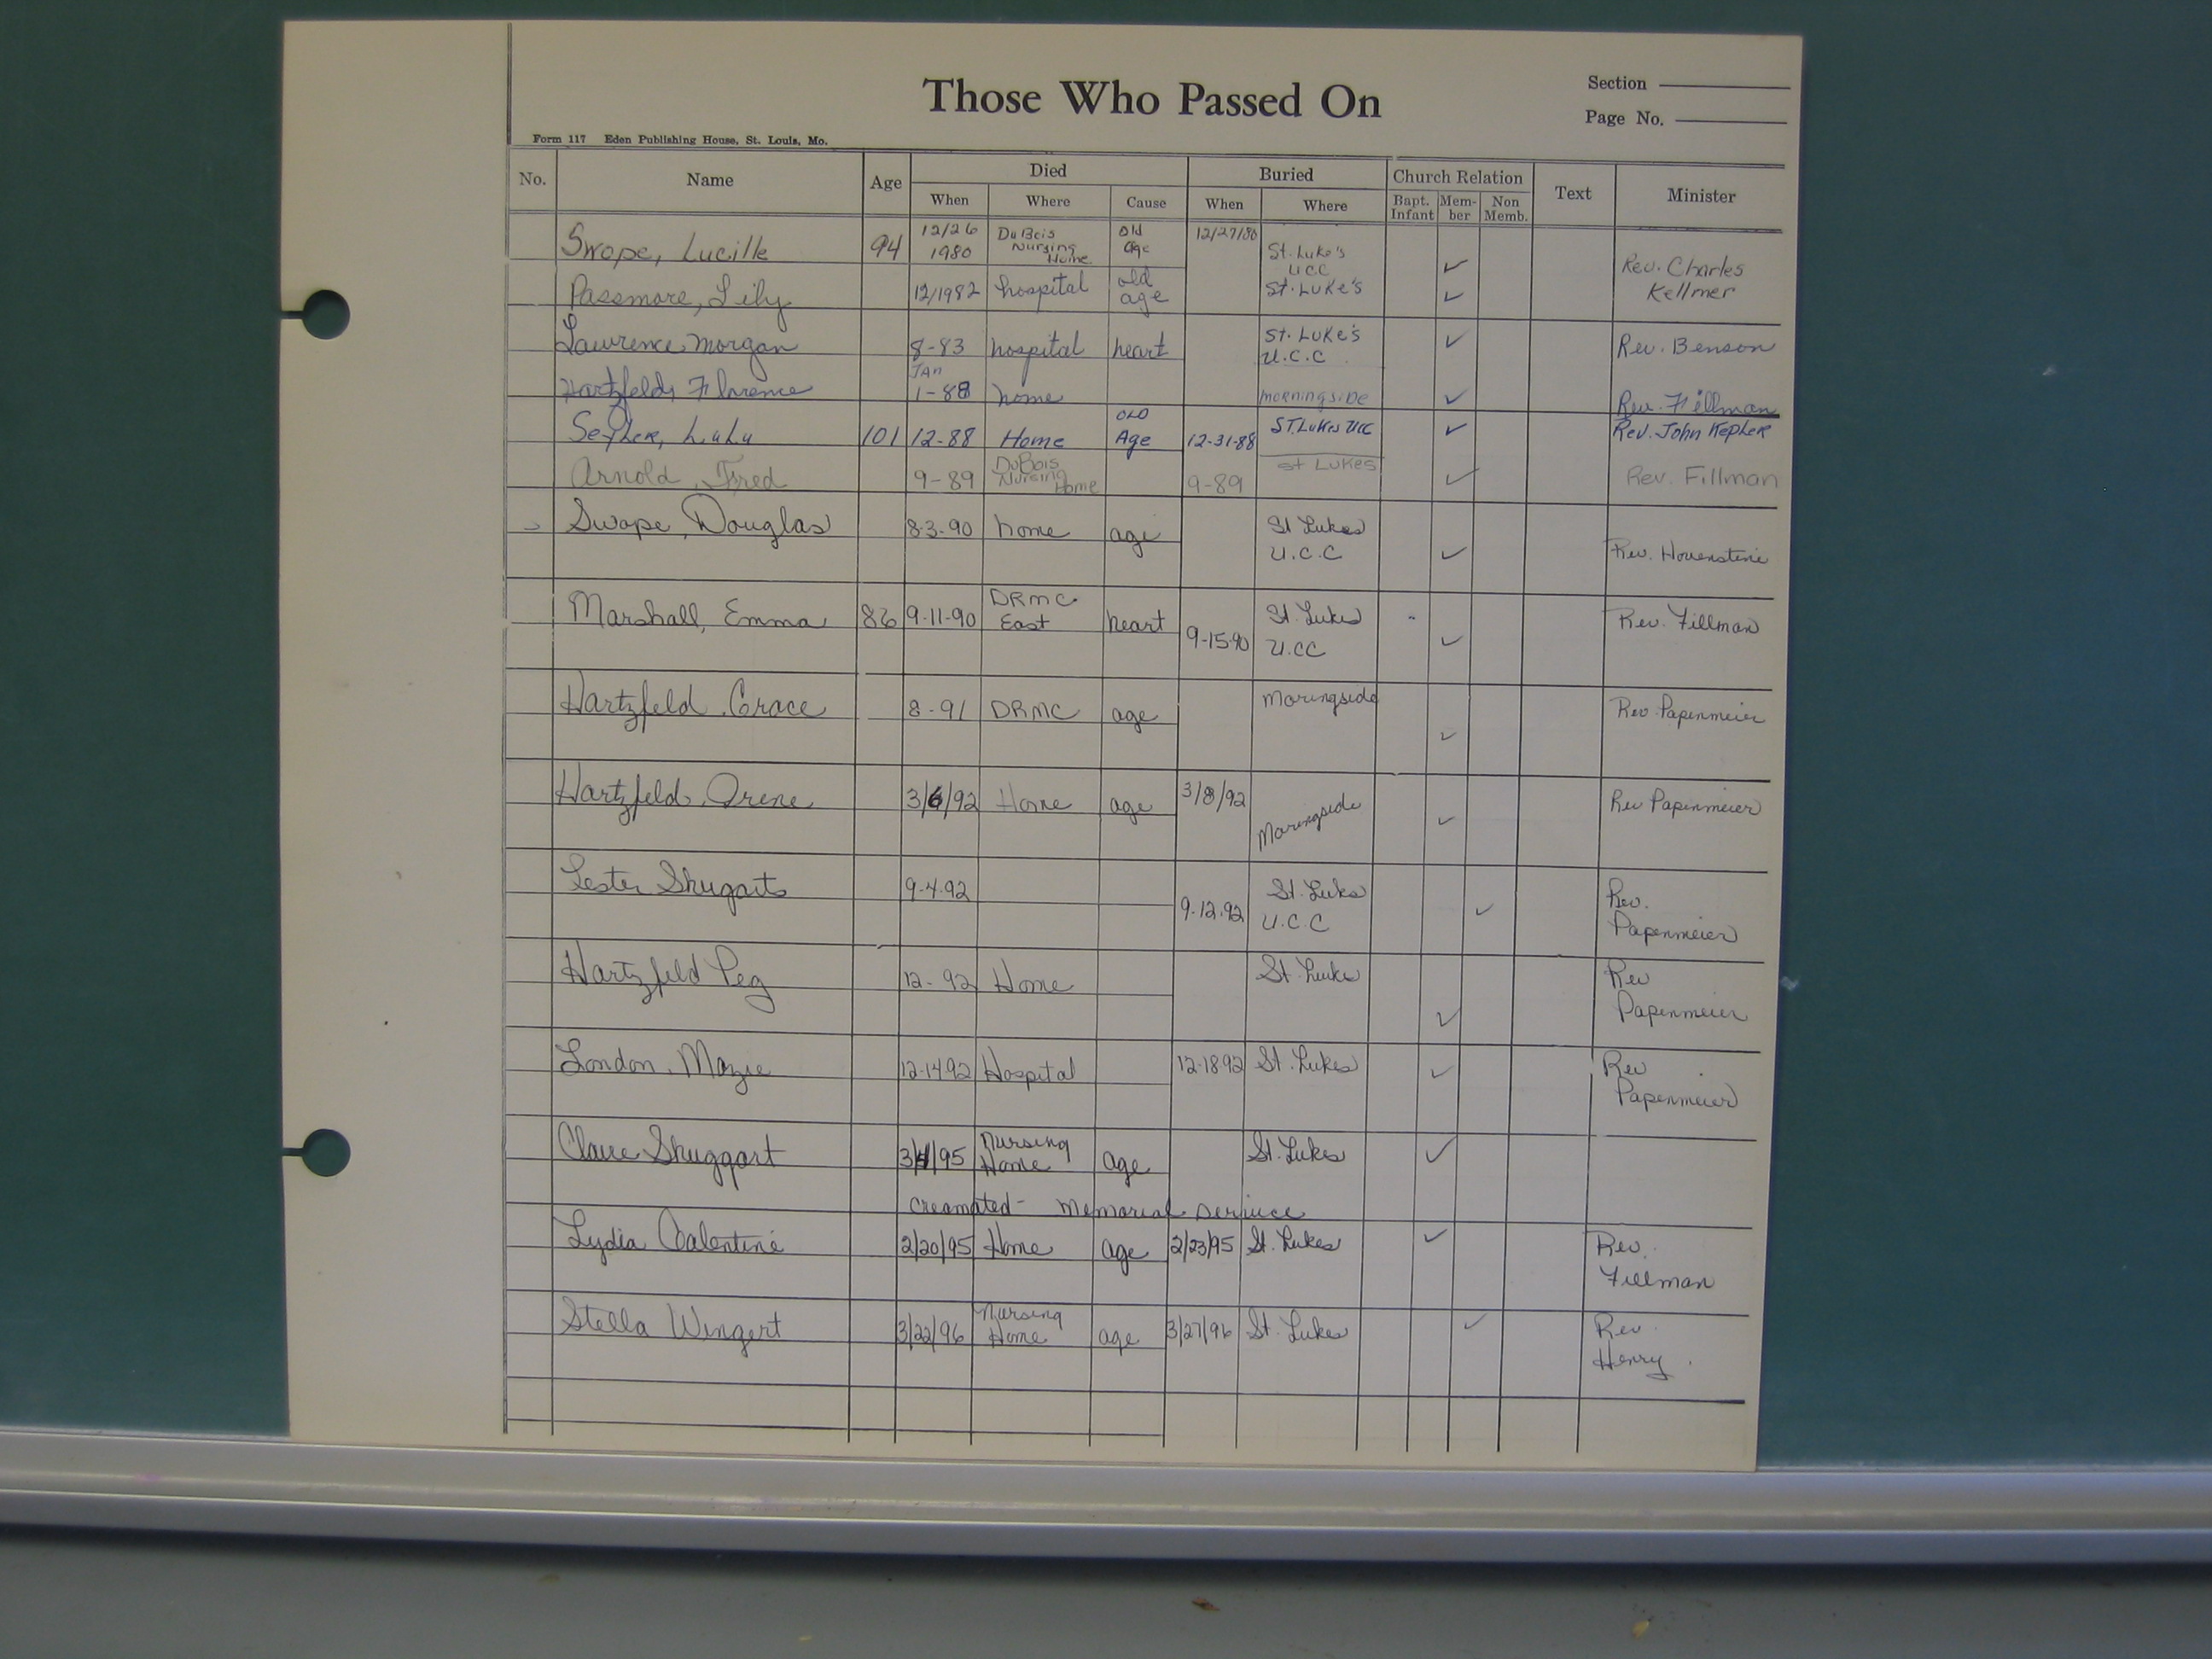 Those Who Passed On
Section
Page No.
Form 117 Eden Publishing House, St. Louis, Mo.
No. Name Age Died Buried Church Relation Text Minister
When Where Cause When Where Bapt. Infant Mem-ber Non Memb.
Swope, Lucille 94 12/26 1980 DuBois Nursing Home old age 12/27/80 St. Luke's UCC ✓ Rev. Charles Kellmer
Passmore, Lily 12/1982 hospital old age St. Luke's ✓
Lawrence Morgan 8-83 hospital heart St. Luke's U.C.C ✓ Rev. Benson
Hartzfeld, Florence JAN 1-88 home morningside ✓ Rev. Fillman
Seyler, Lulu 101 12-88 Home OLD Age 12-31-88 ST. Lukes UCC ✓ Rev. John Kepler
Arnold, Fred 9-89 DuBois Nursing Home 9-89 St Lukes ✓ Rev. Fillman
Swope, Douglas 8-3-90 home age St Lukes U.C.C ✓ Rev. Houenstine
Marshall, Emma 86 9-11-90 DRMC East heart 9-15-90 St. Lukes U.CC ✓ Rev. Fillman
Hartzfeld, Grace 8-91 DRMC age Morningside ✓ Rev Papenmeier
Hartzfeld, Irene 3/6/92 Home age 3/8/92 Morningside ✓ Rev Papenmeier
Lester Shugarts 9-4-92 9-12-92 St. Luke U.C.C ✓ Rev. Papenmeier
Hartzfeld Peg 12-92 Home St. Luke ✓ Rev Papenmeier
London, Mazie 12-14-92 Hospital 12-18-92 St. Lukes ✓ Rev Papenmeier
Claire Shuggart 3/4/95 Nursing Home age St. Lukes ✓
Creamated - Memorial Serivice
Lydia Calentine 2/20/95 Home age 2/23/95 St. Lukes ✓ Rev. Fillman
Stella Wingert 3/22/96 Nursing Home age 3/27/96 St. Lukes ✓ Rev. Henry